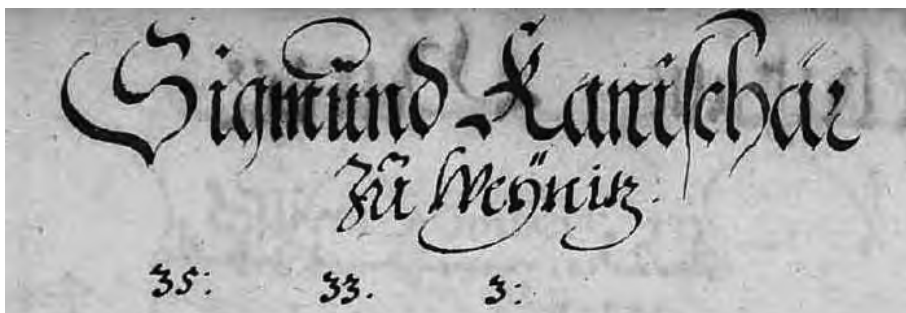 Sigmünd Kanischär
Zŭ Weÿnitz.
35: 33. 3: